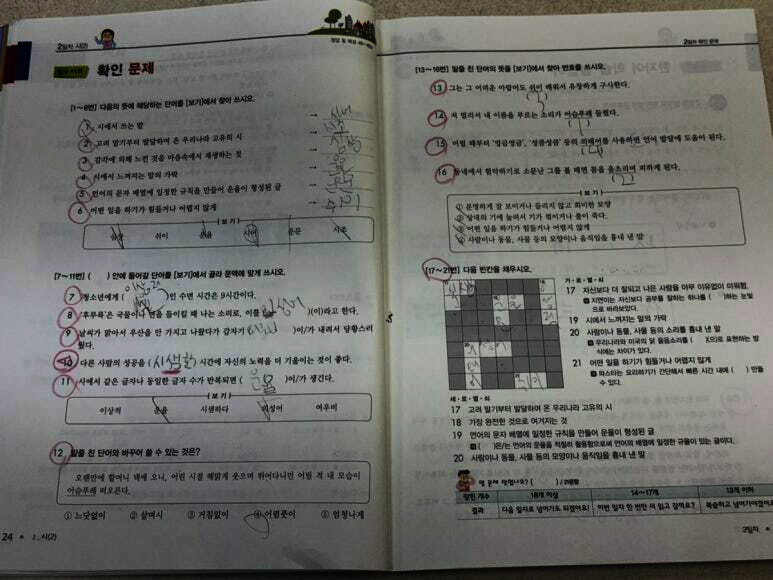 2일차 시간
확인 문제
[1~6번] 다음의 뜻에 해당하는 단어를 [보기]에서 찾아 쓰시오.
1 시에서 쓰는 말
2 고려 말기부터 발달하여 온 우리나라 고유의 시
3 감각에 의해 느낀 것을 마음속에서 재생하는 것
4 시에서 느껴지는 말의 가락
5 언어의 문자 배열에 일정한 규칙을 만들어 운율이 형성된 글
6 어떤 일을 하기가 힘들거나 어렵지 않게
보기
심상 쉬이 운율 시어 운문 시조
[7~11번] ( ) 안에 들어갈 단어를 [보기]에서 골라 문맥에 맞게 쓰시오.
7 청소년에게 ( )인 수면 시간은 9시간이다.
8 '후루룩'은 국수나 면을 들이킬 때 나는 소리로, 이를 ( )(이)라고 한다.
9 날씨가 맑아서 우산을 안 가지고 나왔다가 갑자기 ( )이/가 내려서 당황스러
웠다.
10 다른 사람의 성공을 (시샘할) 시간에 자신의 노력을 더 기울이는 것이 좋다.
11 시에서 같은 글자나 동일한 글자 수가 반복되면 (운율)이/가 생긴다.
보기
이상적 운율 시샘하다 의성어 여우비
12 밑줄 친 단어와 바꾸어 쓸 수 있는 것은?
오랜만에 할머니 댁에 오니, 어린 시절 해맑게 웃으며 뛰어다니던 어릴 적 내 모습이
어슴푸레 떠오른다.
① 느닷없이 ② 살며시 ③ 거침없이 ④ 어렴풋이 ⑤ 엄청나게
24 Ⅰ. 시(2)
2일차 확인 문제
[13~16번] 밑줄 친 단어의 뜻을 [보기]에서 찾아 번호를 쓰시오.
13 그는 그 어려운 아랍어도 쉬이 배워서 유창하게 구사한다.
14 저 멀리서 내 이름을 부르는 소리가 어슴푸레 들렸다.
15 어릴 때부터 '멍금멍금', '성큼성큼' 등의 의태어를 사용하면 언어 발달에 도움이 된다.
16 동네에서 험악하기로 소문난 그를 볼 때면 몸을 움츠리며 피하게 된다.
보기
① 분명하게 잘 보이거나 들리지 않고 희미한 모양
② 상대의 기에 눌려서 기가 꺾이거나 풀이 죽다.
③ 어떤 일을 하기가 힘들거나 어렵지 않게
④ 사람이나 동물, 사물 등의 모양이나 움직임을 흉내 낸 말
[17~21번] 다음 빈칸을 채우시오.
가·로·열·쇠
17 자신보다 더 잘되고 나은 사람을 아무 이유없이 미워함.
지연이는 자신보다 공부를 잘하는 하나를 ( )하는 눈빛
으로 바라보았다.
19 시에서 느껴지는 말의 가락
20 사람이나 동물, 사물 등의 소리를 흉내 낸 말
우리나라와 미국의 닭 울음소리를 ( )(으)로 표현하는 방
식에는 차이가 있다.
21 어떤 일을 하기가 힘들거나 어렵지 않게
파스타는 요리하기가 간단해서 빠른 시간 내에 ( ) 만들
수 있다.
세·로·열·쇠
17 고려 말기부터 발달하여 온 우리나라 고유의 시
18 가장 완전한 것으로 여겨지는 것
19 언어의 문자 배열에 일정한 규칙을 만들어 운율이 형성된 글
( )은/는 언어의 운율을 적절히 활용함으로써 언어의 배열에 일정한 규율이 있는 글이다.
20 사람이나 동물, 사물 등의 모양이나 움직임을 흉내 낸 말
맞힌 개수 18개 이상 14~17개 13개 이하
결과 다음 일차로 넘어가도 되겠어요! 이번 일차 한 번만 더 읽고 갈까요? 복습하고 넘어가야겠어요
2일차